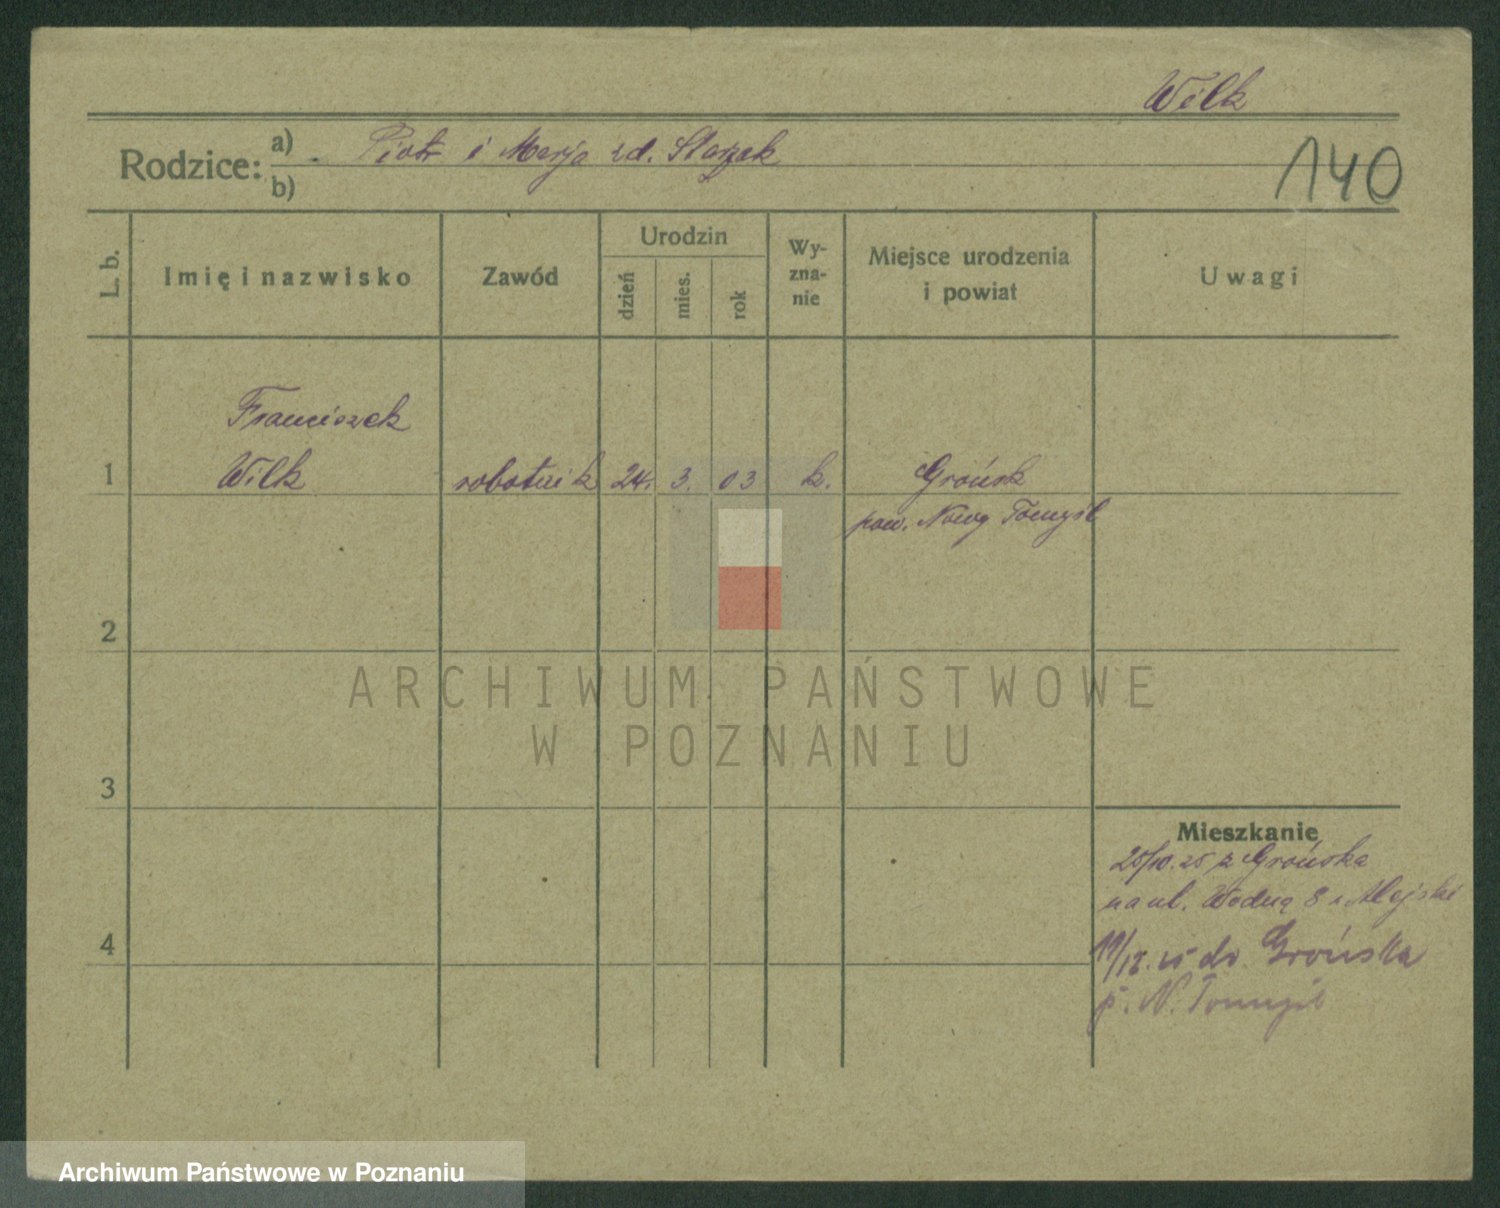 Wilk
Rodzice: a) Piotr i Marja zd. Starzak
b)
140
L. b.
Imię i nazwisko
Zawód
Urodzin
dzień
mies.
rok
Wy-
zna-
nie
Miejsce urodzenia
i powiat
Uwagi
Franciszek
1 Wilk robotnik 24. 3. 03 k. Grońsk
pow. Nowy Tomyśl
2
3
4
Mieszkanie
25/10. 25 z Grońska
na ul. Wodną 8
19/12. 25 do Grońska
p. N. Tomyśl
ARCHIWUM PAŃSTWOWE
W POZNANIU
Archiwum Państwowe w Poznaniu